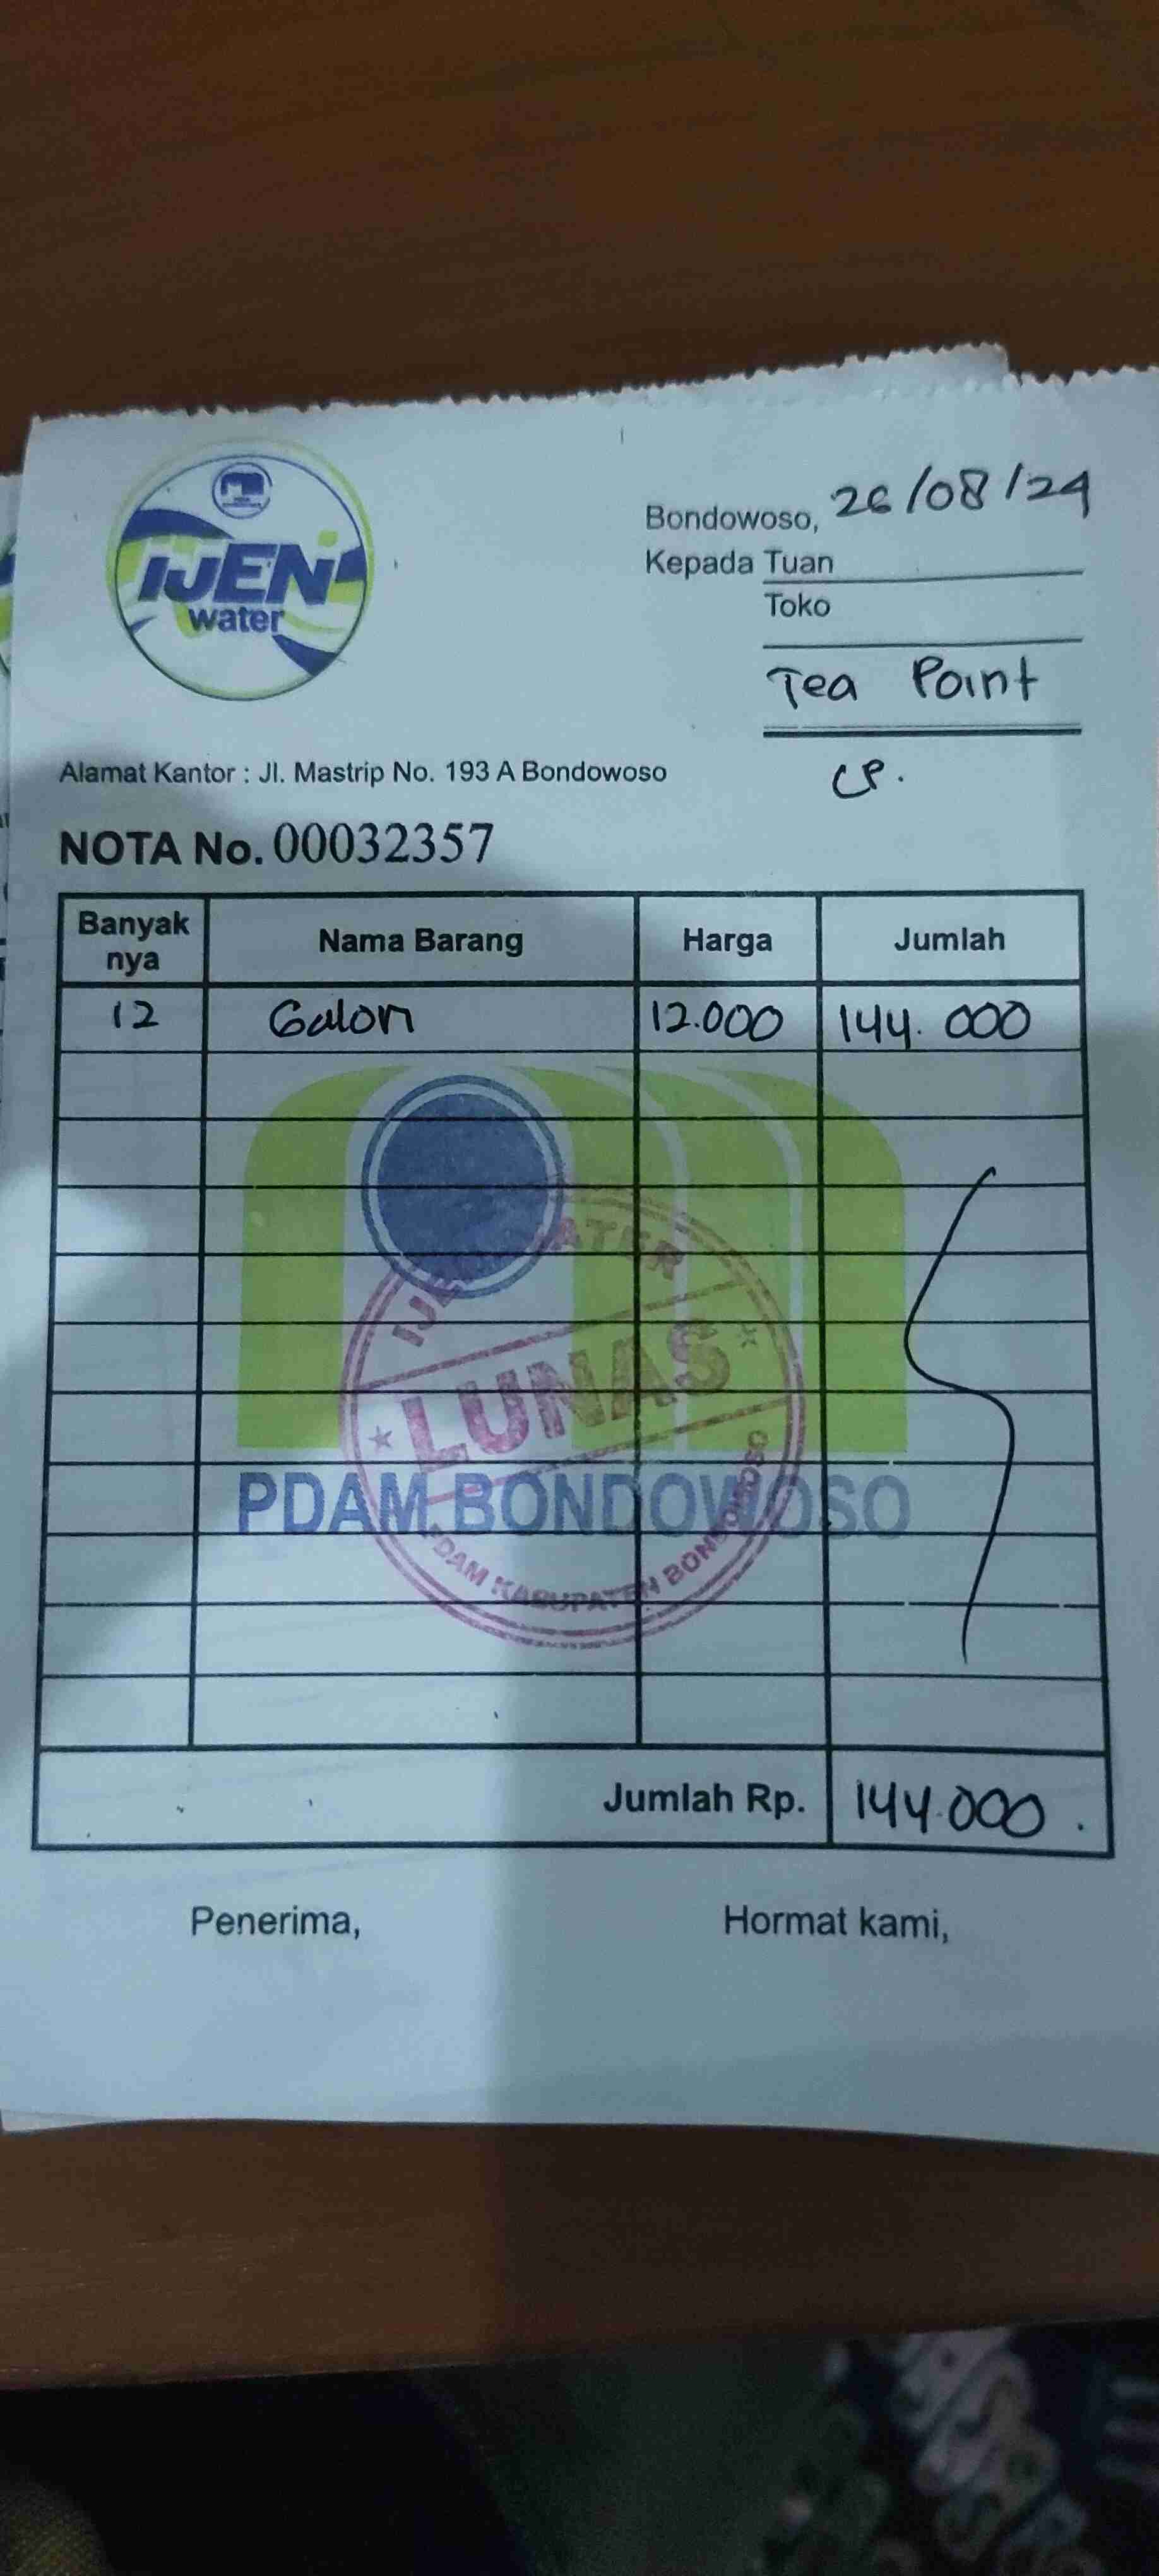 IJEN
water
Bondowoso, 26/08/24
Kepada Tuan
Toko
Tea Point
Alamat Kantor : Jl. Mastrip No. 193 A Bondowoso
NOTA No. 00032357
Banyak nya Nama Barang Harga Jumlah
12 Galon 12.000 144.000
IJEN WATER
LUNAS
PDAM BONDOWOSO
PDAM KABUPATEN BONDOWOSO
Jumlah Rp. 144.000.
Penerima, Hormat kami,